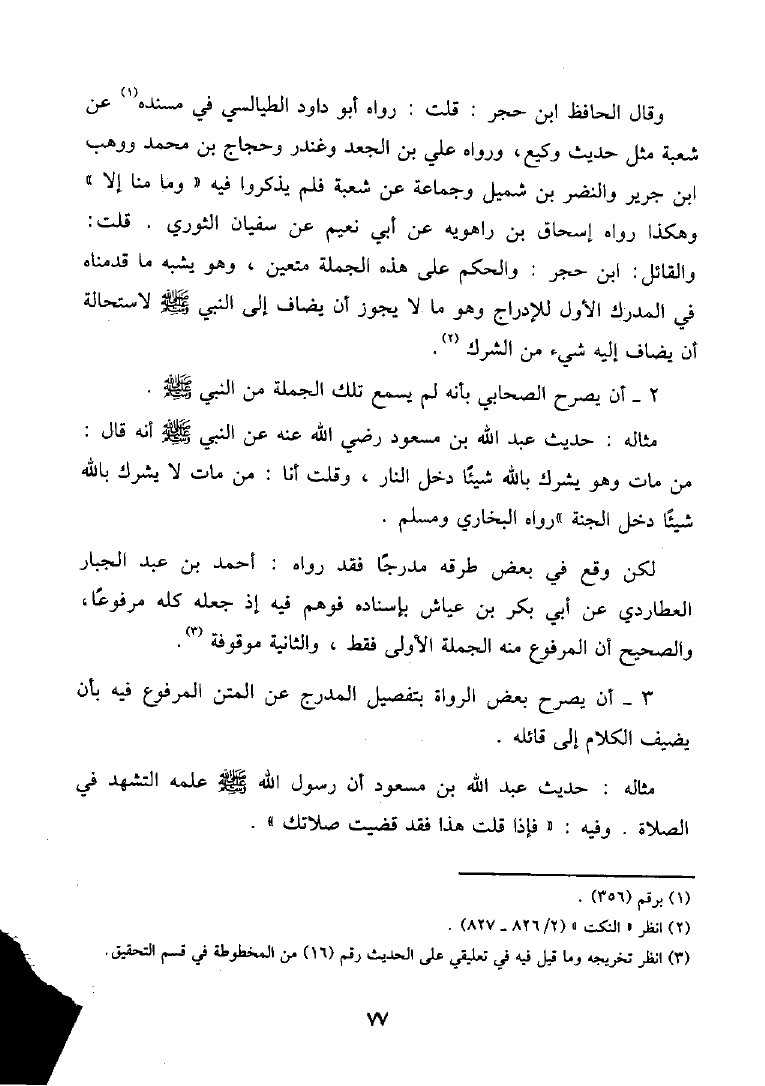 وقال الحافظ ابن حجر : قلت : رواه أبو داود الطيالسي في مسنده(١) عن
شعبة مثل حديث وكيع، ورواه علي بن الجعد وغندر وحجاج بن محمد ووهب
ابن جرير والنضر بن شميل وجماعة عن شعبة فلم يذكروا فيه « وما منا إلا »
وهكذا رواه إسحاق بن راهويه عن أبي نعيم عن سفيان الثوري . قلت:
والقائل: ابن حجر : والحكم على هذه الجملة متعين ، وهو يشبه ما قدمناه
في المدرك الأول للإدراج وهو ما لا يجوز أن يضاف إلى النبي ﷺ لاستحالة
أن يضاف إليه شيء من الشرك (٢).
٢ ـ أن يصرح الصحابي بأنه لم يسمع تلك الجملة من النبي ﷺ .
مثاله : حديث عبد الله بن مسعود رضي الله عنه عن النبي ﷺ أنه قال :
من مات وهو يشرك بالله شيئًا دخل النار ، وقلت أنا : من مات لا يشرك بالله
شيئًا دخل الجنة »رواه البخاري ومسلم .
لكن وقع في بعض طرقه مدرجًا فقد رواه : أحمد بن عبد الجبار
العطاردي عن أبي بكر بن عياش بإسناده فوهم فيه إذ جعله كله مرفوعًا،
والصحيح أن المرفوع منه الجملة الأولى فقط ، والثانية موقوفة (٣).
٣ ـ أن يصرح بعض الرواة بتفصيل المدرج عن المتن المرفوع فيه بأن
يضيف الكلام إلى قائله .
مثاله : حديث عبد الله بن مسعود أن رسول الله ﷺ علمه التشهد في
الصلاة . وفيه : « فإذا قلت هذا فقد قضيت صلاتك » .
(١) برقم (٣٥٦) .
(٢) انظر « النكت » (٨٢٦/٢ ـ ٨٢٧) .
(٣) انظر تخريجه وما قيل فيه في تعليقي على الحديث رقم (١٦) من المخطوطة في قسم التحقيق.
٧٧